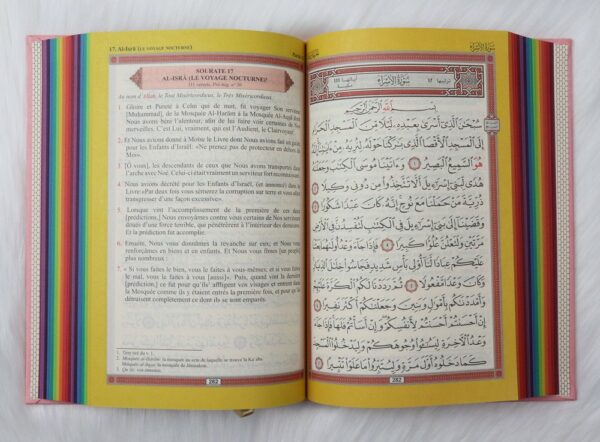 17. Al-Isrâ (LE VOYAGE NOCTURNE)
SOURATE 17
AL-ISRÂ (LE VOYAGE NOCTURNE)
111 versets
Au nom d'Allah, le Tout Miséricordieux, le Très Miséricordieux.
1. Gloire et Pureté à Celui qui de nuit, fit voyager Son serviteur
[Muhammad], de la Mosquée Al-Harâm à la Mosquée Al-Aqsâ dont
Nous avons béni l'alentour, afin de lui faire voir certaines de Nos
merveilles. C'est Lui, vraiment, qui est l'Audient, le Clairvoyant.
2. Et Nous avions donné à Moïse le Livre dont Nous avions fait un guide
pour les Enfants d'Israël: «Ne prenez pas de protecteur en dehors de
Moi».
3. [Ô vous], les descendants de ceux que Nous avons transportés dans
l'arche avec Noé. Celui-ci était vraiment un serviteur fort reconnaissant.
4. Nous avions décrété pour les Enfants d'Israël, (et annoncé) dans le
Livre:«Par deux fois vous sèmerez la corruption sur terre et vous allez
transgresser d'une façon excessive».
5. Lorsque vint l'accomplissement de la première de ces deux
[prédictions,] Nous envoyâmes contre vous certains de Nos serviteurs
doués d'une force terrible, qui pénétrèrent à l'intérieur des demeures.
Et la prédiction fut accomplie.
6. Ensuite, Nous vous donnâmes la revanche sur eux; et Nous vous
renforçâmes en biens et en enfants. Et Nous vous fîmes [un peuple]
plus nombreux :
7. « Si vous faites le bien, vous le faites à vous-mêmes; et si vous faites le
mal, vous le faites à vous [aussi]». Puis, quand vint la dernière
[prédiction,] ce fut pour qu'ils affligent vos visages et entrent dans
la Mosquée comme ils y étaient entrés la première fois, et pour qu'ils
détruisent complètement ce dont ils se sont emparés.
2. Mosquée al-Harâm: la mosquée au sein de laquelle se trouve la Ka'aba.
Mosquée al-Aqsâ: la mosquée de Jérusalem.
282
سُورَةُ الْإِسْرَاءِ
سُورَةُ الْإِسْرَاءِ
بِسْمِ اللَّهِ الرَّحْمَٰنِ الرَّحِيمِ
سُبْحَٰنَ الَّذِي أَسْرَىٰ بِعَبْدِهِ لَيْلًا مِنَ الْمَسْجِدِ الْحَرَامِ
إِلَى الْمَسْجِدِ الْأَقْصَا الَّذِي بَٰرَكْنَا حَوْلَهُ لِنُرِيَهُ مِنْ ءَايَٰتِنَا إِنَّهُ
هُوَ السَّمِيعُ الْبَصِيرُ ١ وَءَاتَيْنَا مُوسَى الْكِتَٰبَ وَجَعَلْنَٰهُ
هُدًى لِبَنِي إِسْرَٰٓءِيلَ أَلَّا تَتَّخِذُوا مِنْ دُونِي وَكِيلًا ٢
ذُرِّيَّةَ مَنْ حَمَلْنَا مَعَ نُوحٍ إِنَّهُ كَانَ عَبْدًا شَكُورًا ٣
وَقَضَيْنَا إِلَىٰ بَنِي إِسْرَٰٓءِيلَ فِي الْكِتَٰبِ لَتُفْسِدُنَّ فِي الْأَرْضِ
مَرَّتَيْنِ وَلَتَعْلُنَّ عُلُوًّا كَبِيرًا ٤ فَإِذَا جَاءَ وَعْدُ أُولَىٰهُمَا بَعَثْنَا
عَلَيْكُمْ عِبَادًا لَنَا أُولِي بَأْسٍ شَدِيدٍ فَجَاسُوا خِلَٰلَ الدِّيَارِ
وَكَانَ وَعْدًا مَفْعُولًا ٥ ثُمَّ رَدَدْنَا لَكُمُ الْكَرَّةَ عَلَيْهِمْ
وَأَمْدَدْنَٰكُمْ بِأَمْوَٰلٍ وَبَنِينَ وَجَعَلْنَٰكُمْ أَكْثَرَ نَفِيرًا ٦
إِنْ أَحْسَنْتُمْ أَحْسَنْتُمْ لِأَنْفُسِكُمْ وَإِنْ أَسَأْتُمْ فَلَهَا فَإِذَا جَاءَ
وَعْدُ الْءَاخِرَةِ لِيَسُۥٓـُٔوا وُجُوهَكُمْ وَلِيَدْخُلُوا الْمَسْجِدَ
كَمَا دَخَلُوهُ أَوَّلَ مَرَّةٍ وَلِيُتَبِّرُوا مَا عَلَوْا تَتْبِيرًا ٧
282